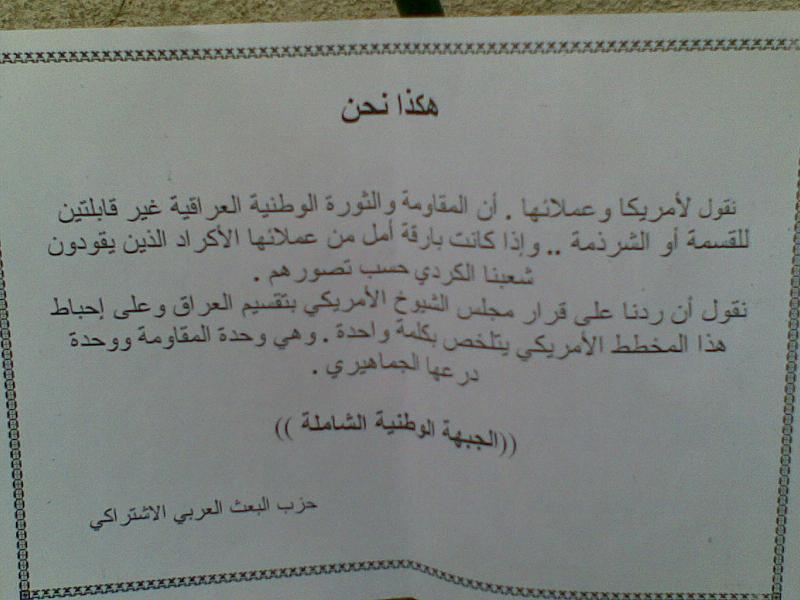 هكذا نحن
نقول لأمريكا وعملائها . أن المقاومة والثورة الوطنية العراقية غير قابلتين
للقسمة أو الشرذمة .. وإذا كانت بارقة أمل من عملائها الأكراد الذين يقودون
شعبنا الكردي حسب تصورهم .
نقول أن ردنا على قرار مجلس الشيوخ الأمريكي بتقسيم العراق وعلى إحباط
هذا المخطط الأمريكي يتلخص بكلمة واحدة . وهي وحدة المقاومة ووحدة
درعها الجماهيري .
((الجبهة الوطنية الشاملة ))
حزب البعث العربي الاشتراكي